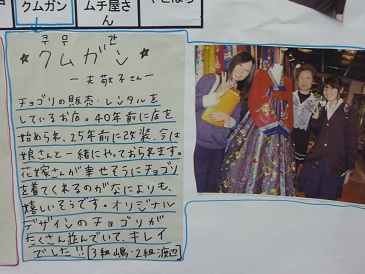 クムガン
ムチ屋さん
쿠무간
☆クムガン☆
チョゴリの販売・レンタルを
しているお店。40年前に店を
始められ、25年前に改装、今は
娘さんと一緒にやっておられます。
花嫁さんが幸せそうにチョゴリ
を着てくれるのがなによりも、
嬉しいそうです。オリジナル
デザインのチョゴリが
たくさん並んでいて、キレイ
でした!!【3組嶋・2組渡辺】